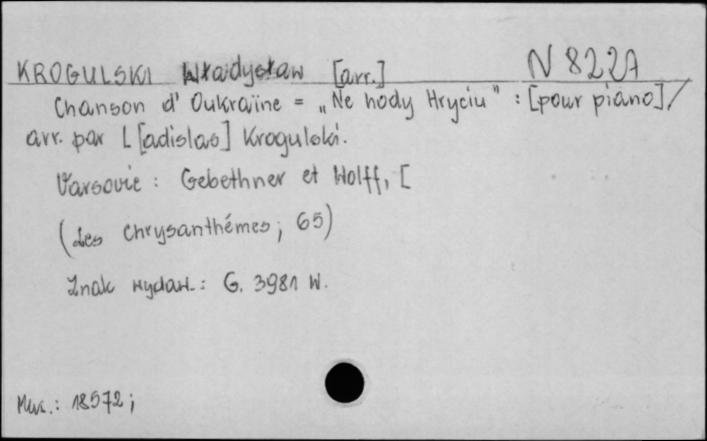 KROGULSKI Władysław [arr.] N 8227
Chanson d'Oukraïne = „Ne hody Hryciu" : [pour piano] /
arr. par L[adislas] Krogulski.
Varsovie : Gebethner et Wolff, [
(Les Chrysanthémes ; 65)
Znak wydaw.: G. 3981 W.
Mus.: 18572 ;